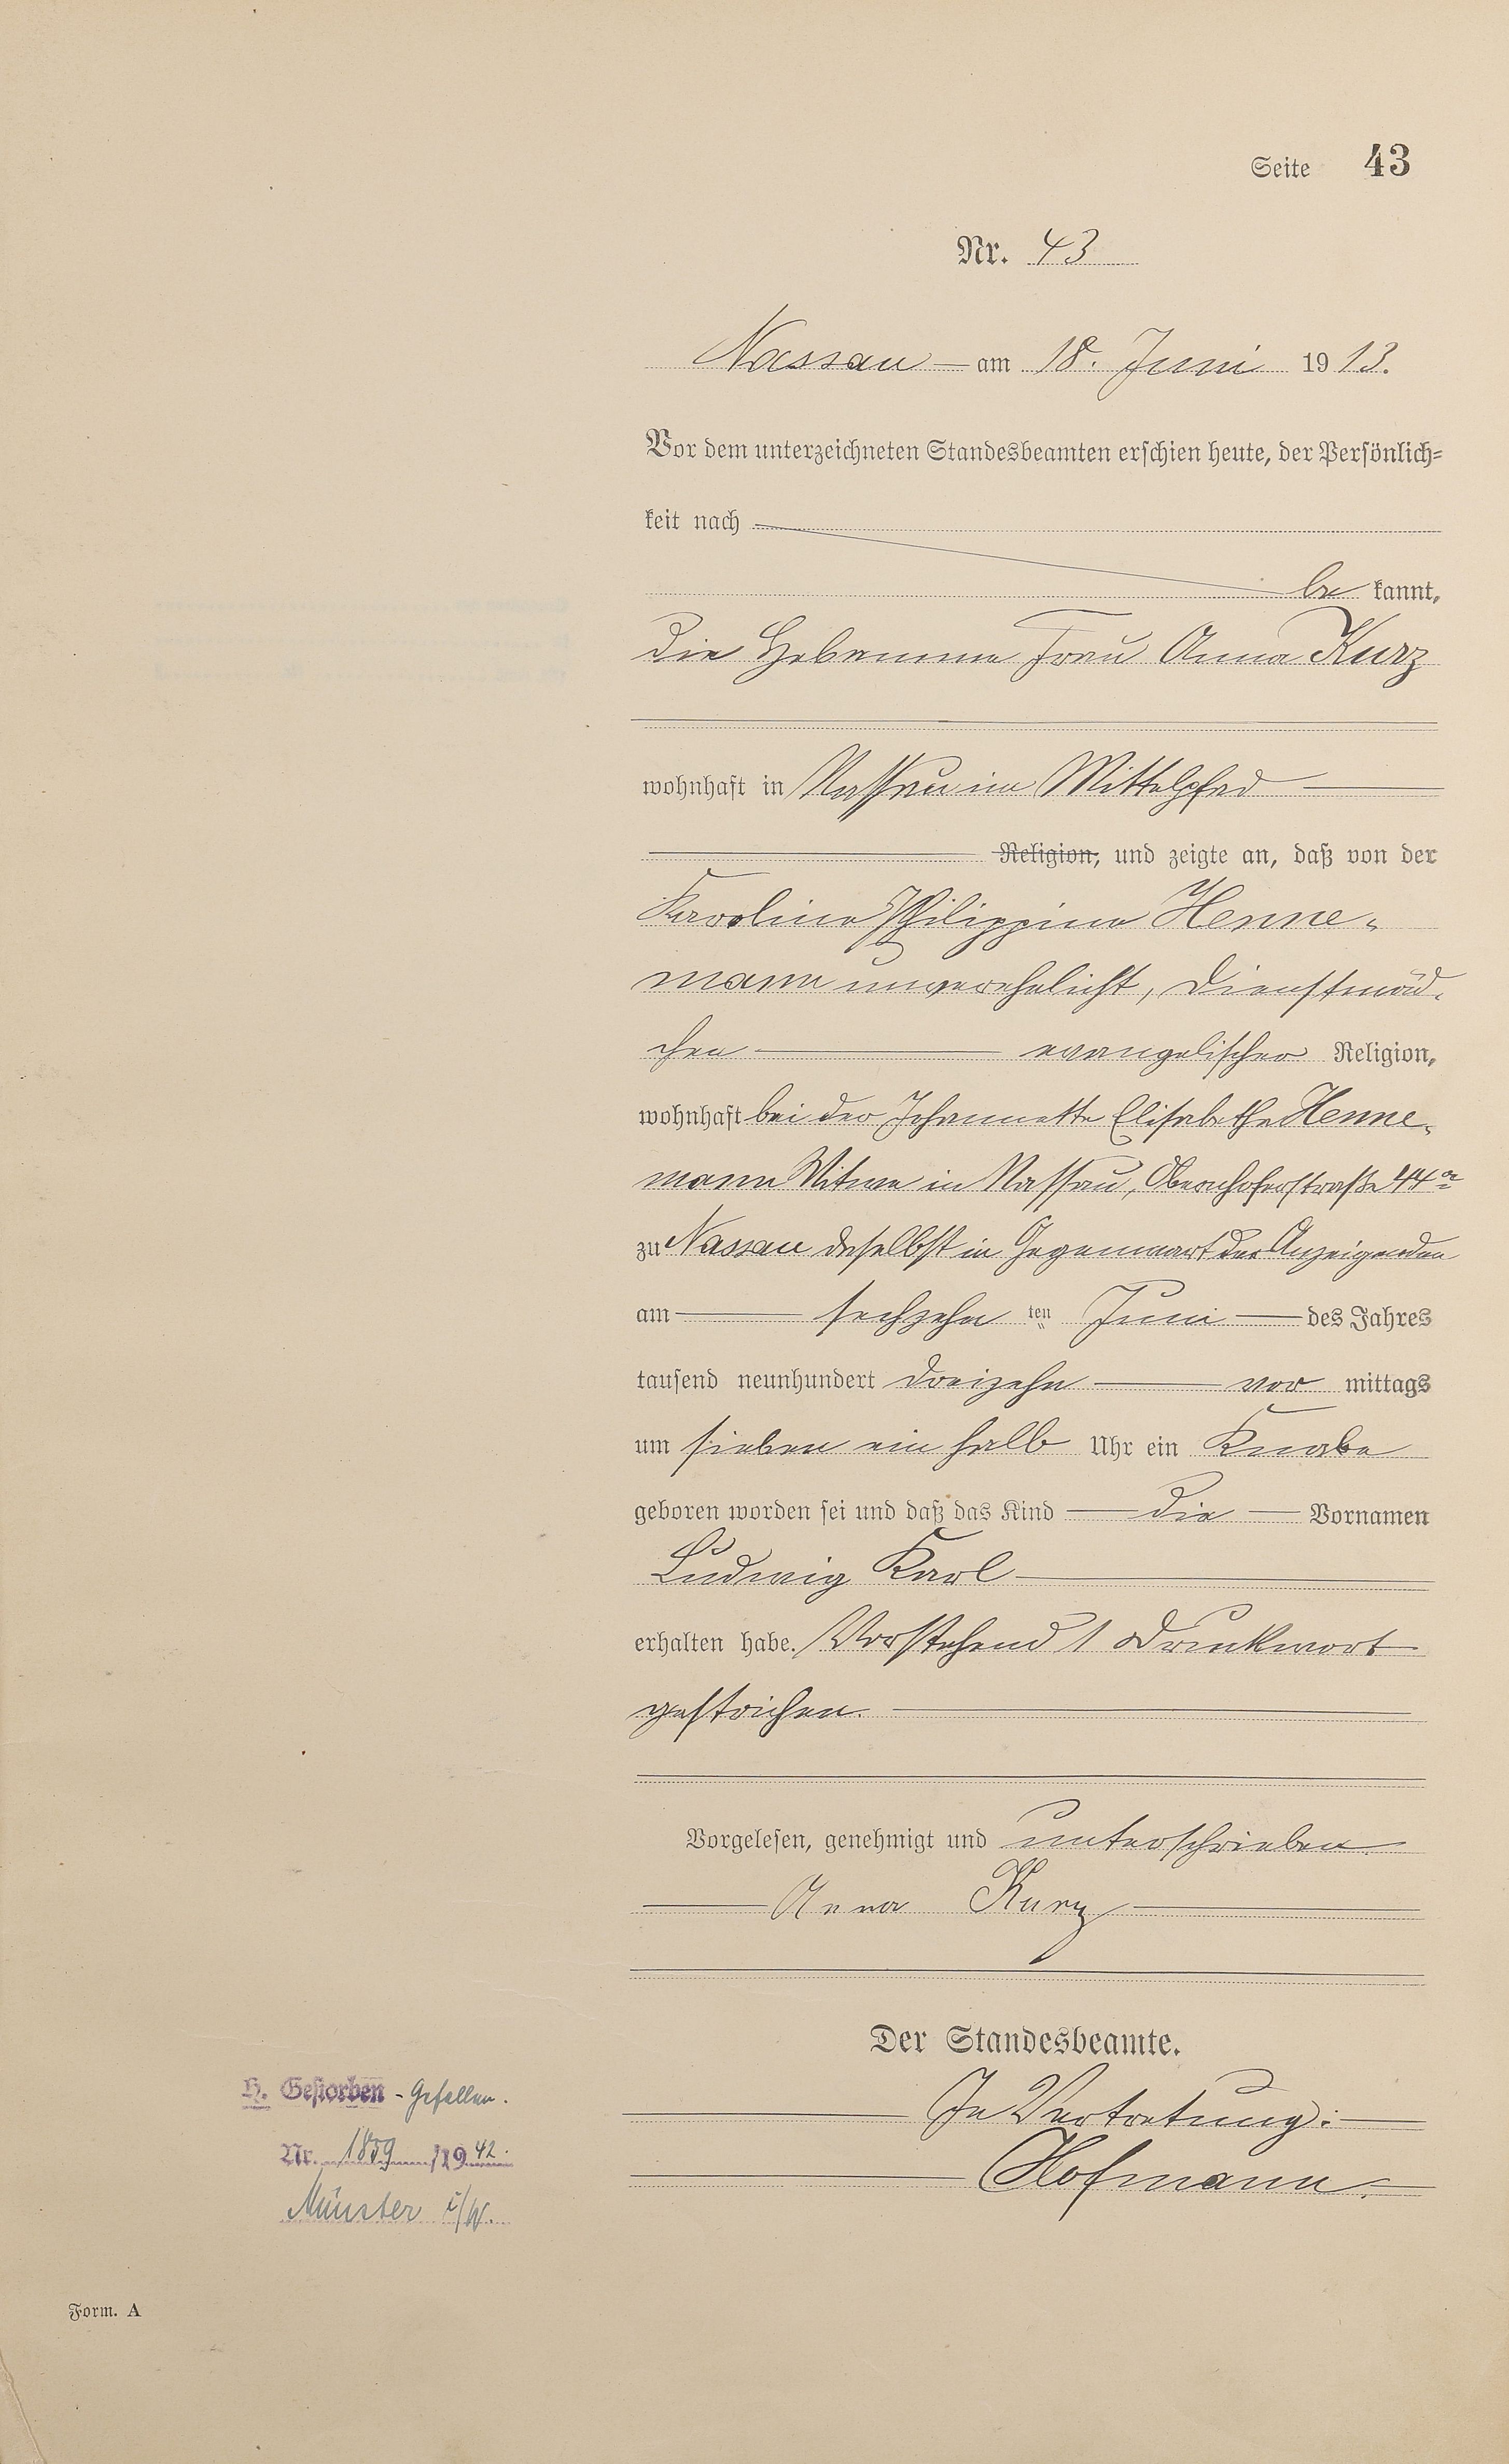 Seite 43
Nr. 43
Nassau am 18. Juni 1913.
Vor dem unterzeichneten Standesbeamten erschien heute, der Persönlich=
keit nach
be kannt,
die Hebamme Frau Anna Kurz
wohnhaft in Nassau im Mittelpfad
Religion, und zeigte an, daß von der
Karoline Philippine Henne-
mann unverehelicht, Dienstmäd-
chen evangelischer Religion,
wohnhaft bei der Johannette Elisabethe Henne-
mann Witwe in Nassau, Obernhoferstraße 44a
zu Nassau daselbst in Gegenwart der Anzeigenden
am sechzehn ten Juni des Jahres
tausend neunhundert dreizehn vor mittags
um sieben ein halb Uhr ein Knabe
geboren worden sei und daß das Kind die Vornamen
Ludwig Karl
erhalten habe. Vorstehend 1 Druckwort
gestrichen.
Vorgelesen, genehmigt und unterschrieben.
Anna Kurz
Der Standesbeamte.
In Vertretung:
Hofmann.
H. Gestorben - Gefallen.
Nr. 1859/1942.
Münster i/W.
Form. A